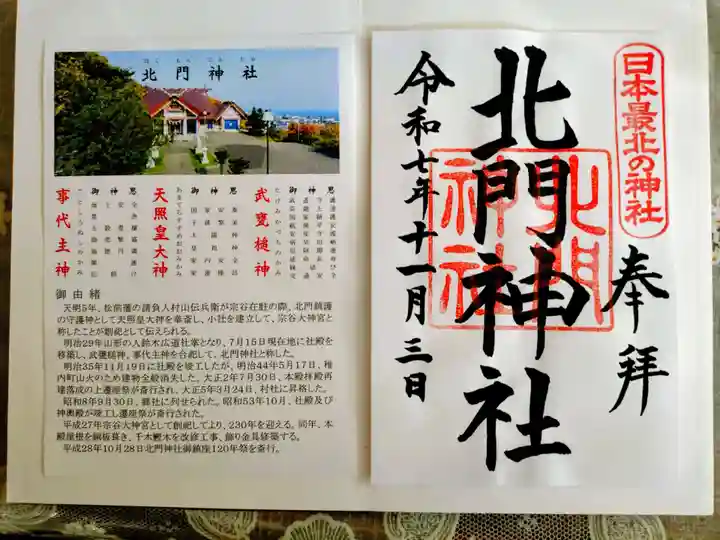 北門神社
武甕槌神
天照皇大神
事代主神
御由緒
天明5年、松前藩の請負人村山伝兵衛が宗谷在駐の際、北門鎮護
の守護神として天照皇大神を奉斎し、小社を建立して、宗谷大神宮と
称したことが創祀として伝えられる。
明治29年山形の人鈴木広道社掌となり、7月15日現在地に社殿を
移築し、武甕槌神、事代主神を合祀して、北門神社と称した。
明治35年11月19日に社殿を竣工したが、明治44年5月17日、稚
内町山火のため建物全般消失した。大正2年7月30日、本殿拝殿再
建落成の上遷座祭が斎行され、大正5年3月24日、村社に昇格した。
昭和8年9月30日、郷社に列せられた。昭和53年10月、社殿及び
神輿殿が竣工し遷座祭が斎行された。
平成27年宗谷大神宮として創祀してより、230年を迎える。同年、本
殿屋根を銅板葺き、千木鰹木を改修工事、飾り金具修築する。
平成28年10月28日北門神社御鎮座120年祭を斎行。
日本最北の神社
奉拝
北門神社
北門
神社
令和七年十一月三日